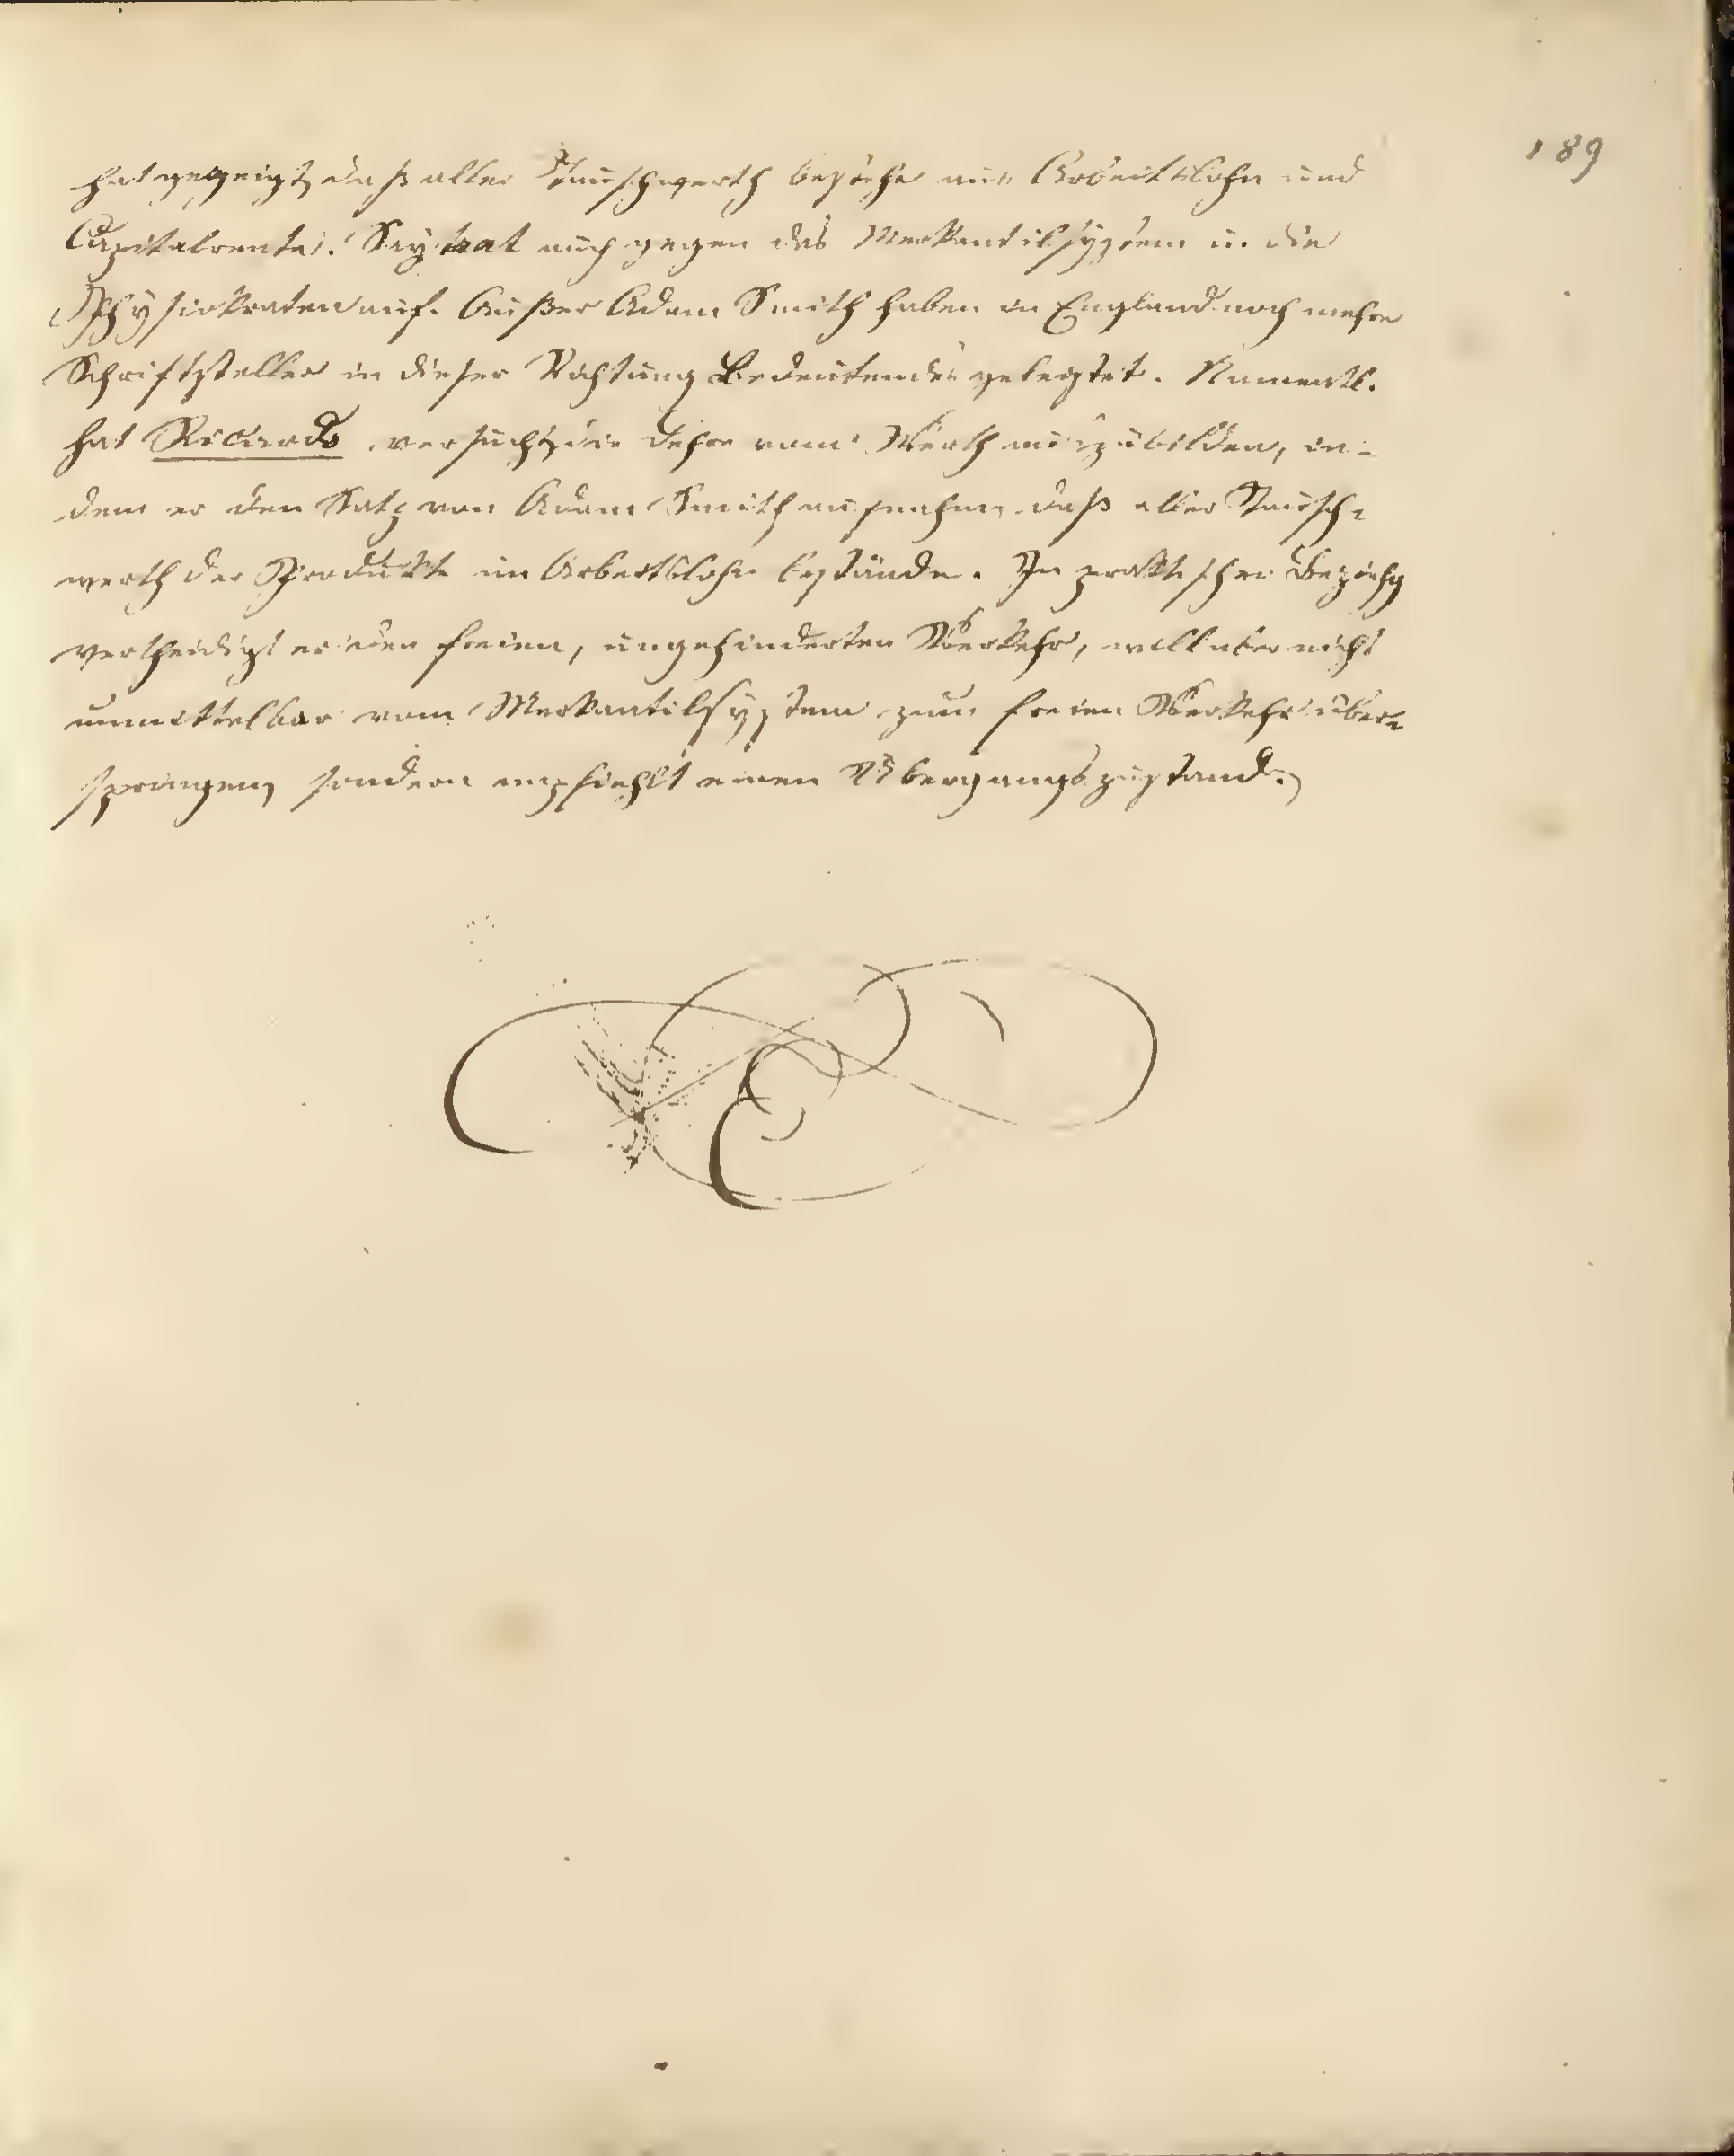 189
hat gezeigt, daß aller Tauschwerth bestehe aus Arbeitslohn und
Capitalrente. Say trat auch gegen das Merkantilsystem u. die
Physiokraten auf. Außer Adam Smith haben in England noch mehre
Schriftsteller in dieser Richtung Bedeutendes geleistet. Namentl.
hat Ricardo versucht, die Lehre vom Werth auszubilden, in-
dem er den Satz von Adam Smith aufnahm daß aller Tausch-
werth der Produkte im Arbeitslohn bestände. In praktischer Beziehg
vertheidigt er den freien, ungehinderten Verkehr, will aber nicht
unmittelbar vom Merkantilsystem zum freien Verkehr über-
springen, sondern empfiehlt einen Übergangszustand.